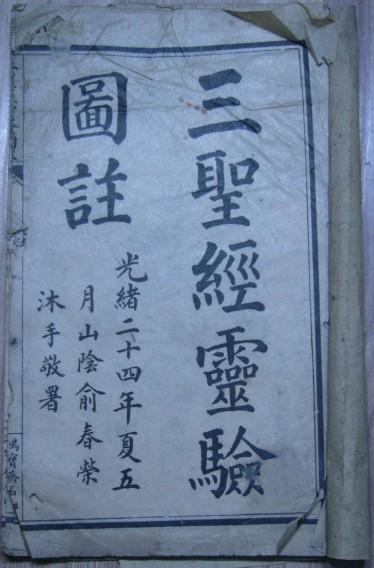 三聖經靈驗
圖註
光緒二十四年夏五
月山陰俞春榮
沐手敬署